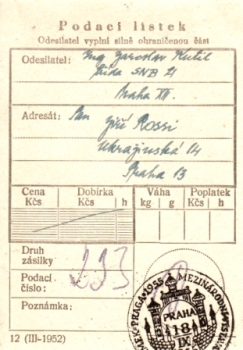 Podací lístek
Odesilatel vyplní silně ohraničenou část
Odesílatel: Ing Jaroslav Kutil
třída SNB 21
Praha XII.
Adresát: Pan
Jiří Rossi
Ukrajinská 14
Praha 13
Cena Dobírka Váha Poplatek
Kčs Kčs h kg g Kčs h
Druh
zásilky
Podací
číslo: 293
Poznámka:
PRAGA 1955 MEZINÁRODNÍ
PRAHA
1
IX
12 (III-1952)